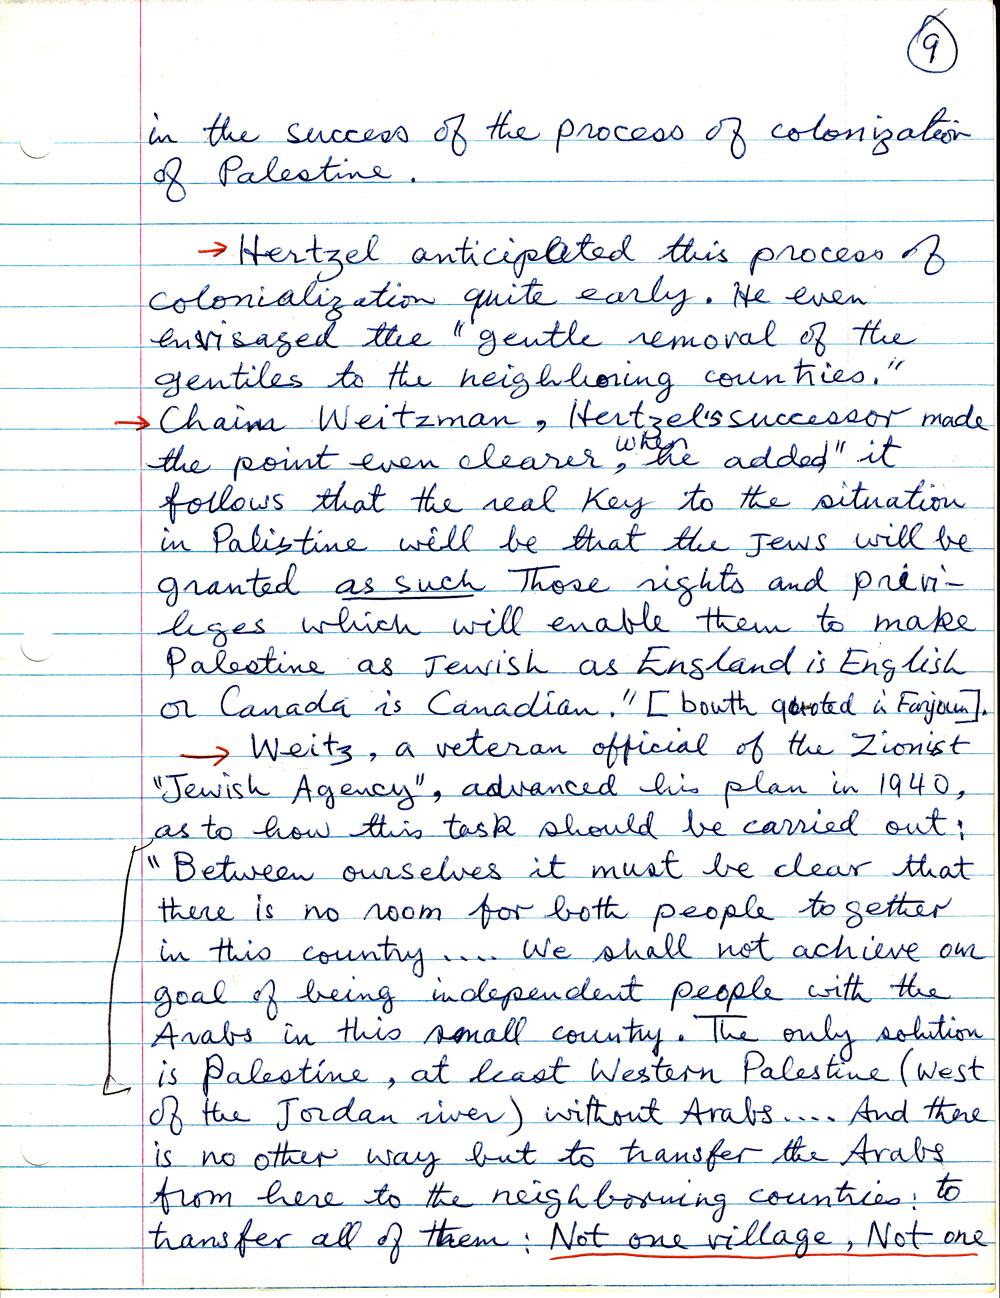 9
in the success of the process of colonization
of Palestine.
→ Hertzel anticipated this process of
colonialization quite early. He even
envisaged the "gentle removal of the
gentiles to the neighboring countries."
→ Chaim Weitzman, Hertzel's successor made
the point even clearer, when he added "it
follows that the real key to the situation
in Palistine will be that the Jews will be
granted as such Those rights and previ-
liges which will enable them to make
Palestine as Jewish as England is English
or Canada is Canadian." [bouth quoted in Farjoun].
→ Weitz, a veteran official of the Zionist
"Jewish Agency", advanced his plan in 1940,
as to how this task should be carried out:
"Between ourselves it must be clear that
there is no room for both people together
in this country.... We shall not achieve our
goal of being independent people with the
Arabs in this small country. The only solution
is Palestine, at least Western Palestine (West
of the Jordan river) without Arabs.... And there
is no other way but to transfer the Arabs
from here to the neighborning countries: to
transfer all of them: Not one village, Not one